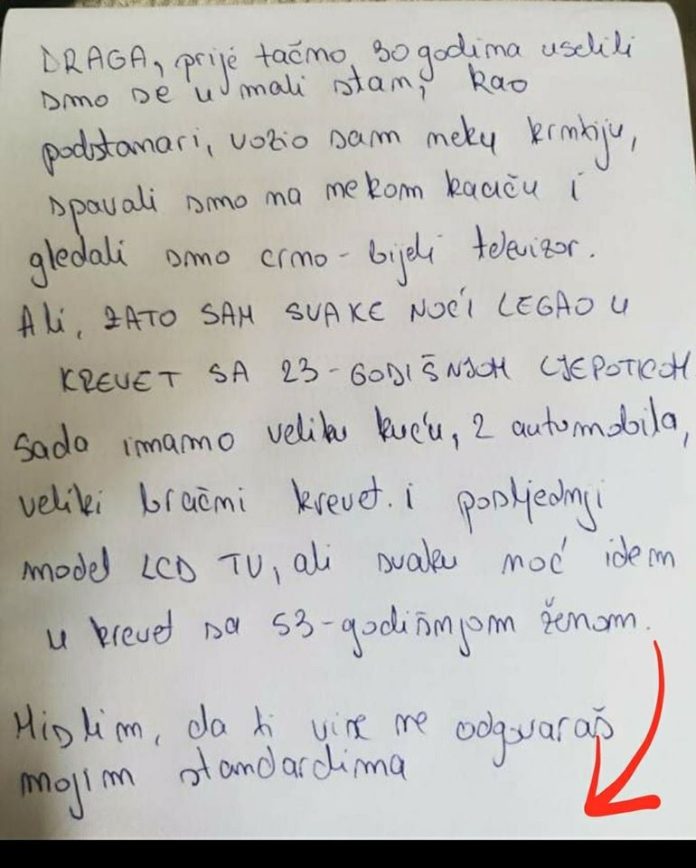 DRAGA, prije tačno 30 godina uselili
smo se u mali stan, kao
podstanari, vozio sam neku krntiju,
spavali smo na nekom kauču i
gledali smo crno-bijeli televizor.
Ali, ZATO SAM SVAKE NOĆI LEGAO U
KREVET SA 23-GODIŠNJOM LJEPOTICOM
Sada imamo veliku kuću, 2 automobila,
veliki bračni krevet i posljednji
model LCD TV, ali svaku noć idem
u krevet sa 53-godišnjom ženom.
Mislim, da ti više ne odgvaraš
mojim standardima